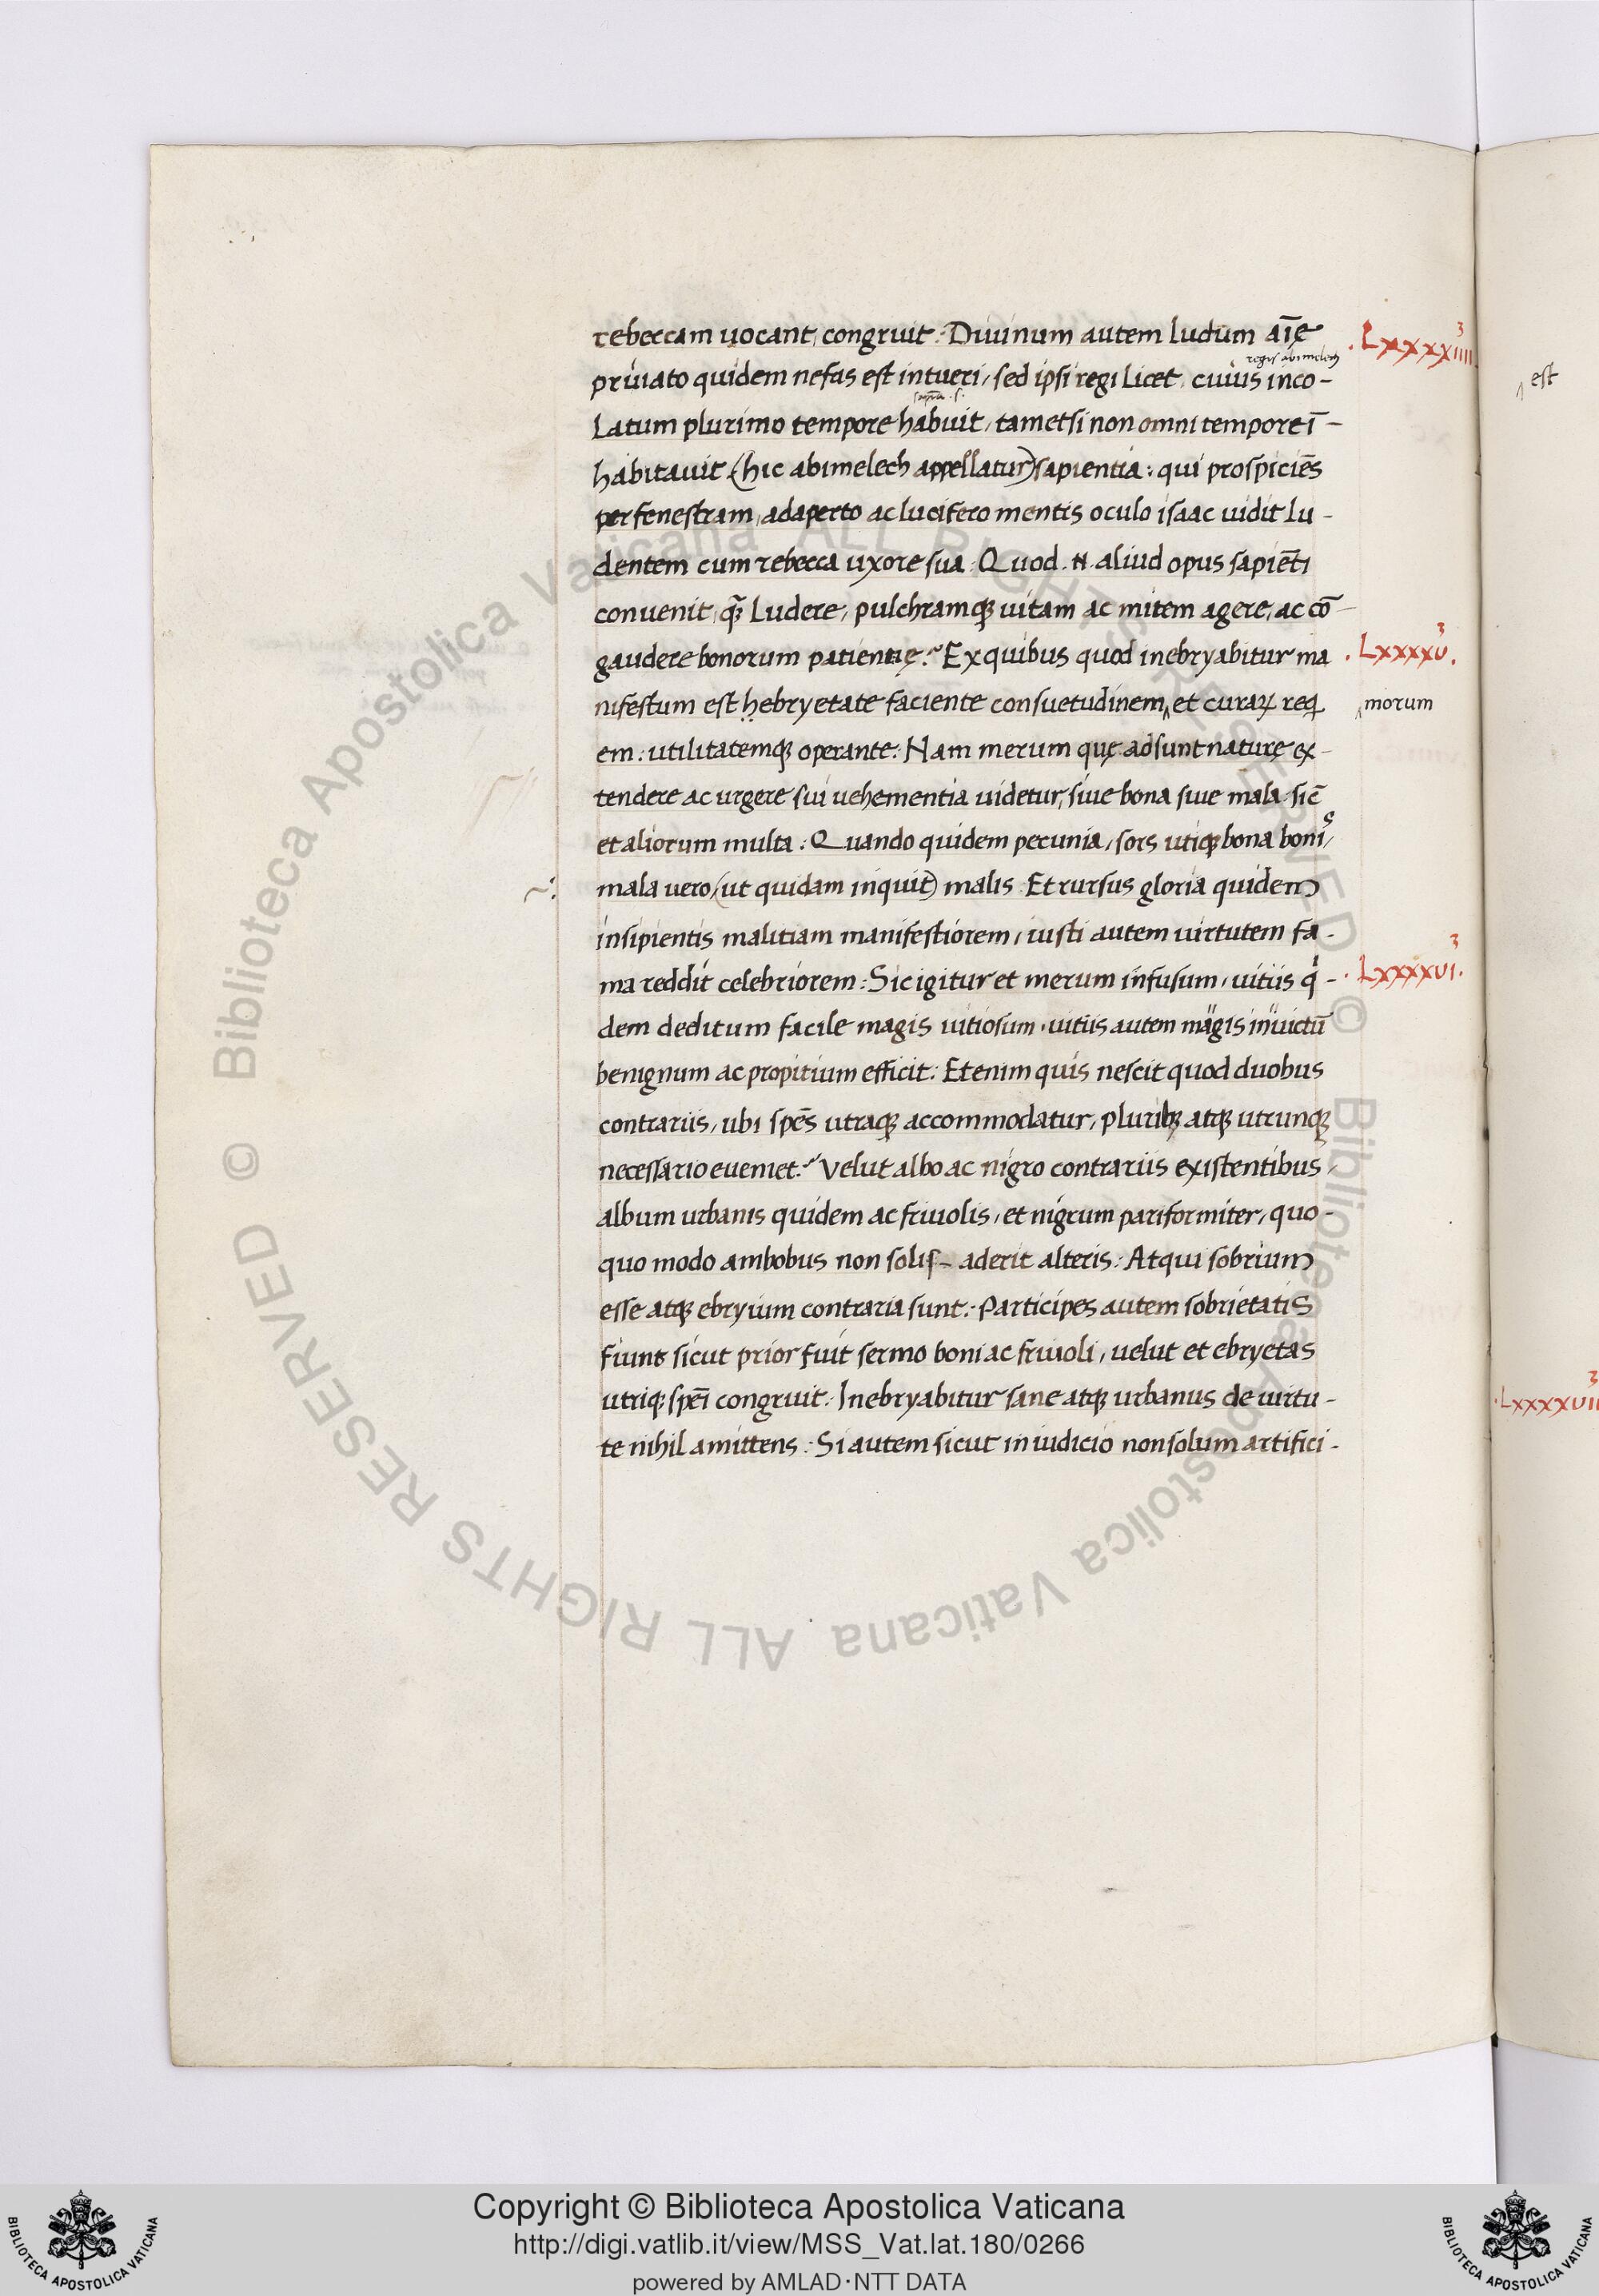 rebeccam uocant, congruit: Diuinum autem ludum aīę
.Lxxxxiiii 3
regis abimelech
priuato quidem nefas est intueri, sed ipsi regi licet, cuius inco-
est
sapīa .s.
Latum plurimo tempore habuit, tametsi non omni tempore ī-
habitauit (hic abimelech appellatur) sapientia: qui prospiciēs
per fenestram, adaperto ac lucifero mentis oculo isaac uidit lu-
dentem cum rebecca uxore sua: Quod .N. aliud opus sapiēti
conuenit, q̄ ludere, pulchramq; uitam ac mitem agere, ac cō-
gaudere bonorum patientię? Ex quibus quod inebryabitur ma
.Lxxxxu. 3
nifestum est hebryetate faciente consuetudinem, et curaꝝ req
morum
em: utilitatemq; operante: Nam merum quę adsunt naturę ex-
tendere ac urgere sui uehementia uidetur, siue bona siue mala. sic̄
et aliorum multa: Quando quidem pecunia, sors utiq; bona bonis,
mala uero (ut quidam inquit) malis. Et rursus gloria quidem
insipientis malitiam manifestiorem, iusti autem uirtutem fa-
ma reddit celebriorem: Sic igitur et merum infusum, uitiis q-
.Lxxxxui. 3
dem deditum facile magis uitiosum, uitiis autem magis inuictū
benignum ac propitium efficit: Etenim quis nescit quod duobus
contrariis, ubi spēs utraq; accommodatur, plurib; atq; utrunq;
necessario eueniet? Velut albo ac nigro contrariis existentibus,
album urbanis quidem ac friuolis, et nigrum pariformiter, quo-
quo modo ambobus non solis- aderit alteris: Atqui sobrium
esse atq; ebryium contraria sunt: Participes autem sobrietatis
fiunt sicut prior fuit sermo boni ac friuoli, uelut et ebryetas
utriq; spēi congruit: Inebryabitur sane atq; urbanus de uirtu-
.Lxxxxuii 3
te nihil amittens: Si autem sicut in iudicio non solum artifici-
© Biblioteca Apostolica Vaticana ALL RIGHTS RESERVED © Biblioteca Apostolica Vaticana ALL RIGHTS RESERVED
BIBLIOTECA APOSTOLICA VATICANA
Copyright © Biblioteca Apostolica Vaticana
http://digi.vatlib.it/view/MSS_Vat.lat.180/0266
powered by AMLAD·NTT DATA
BIBLIOTECA APOSTOLICA VATICANA